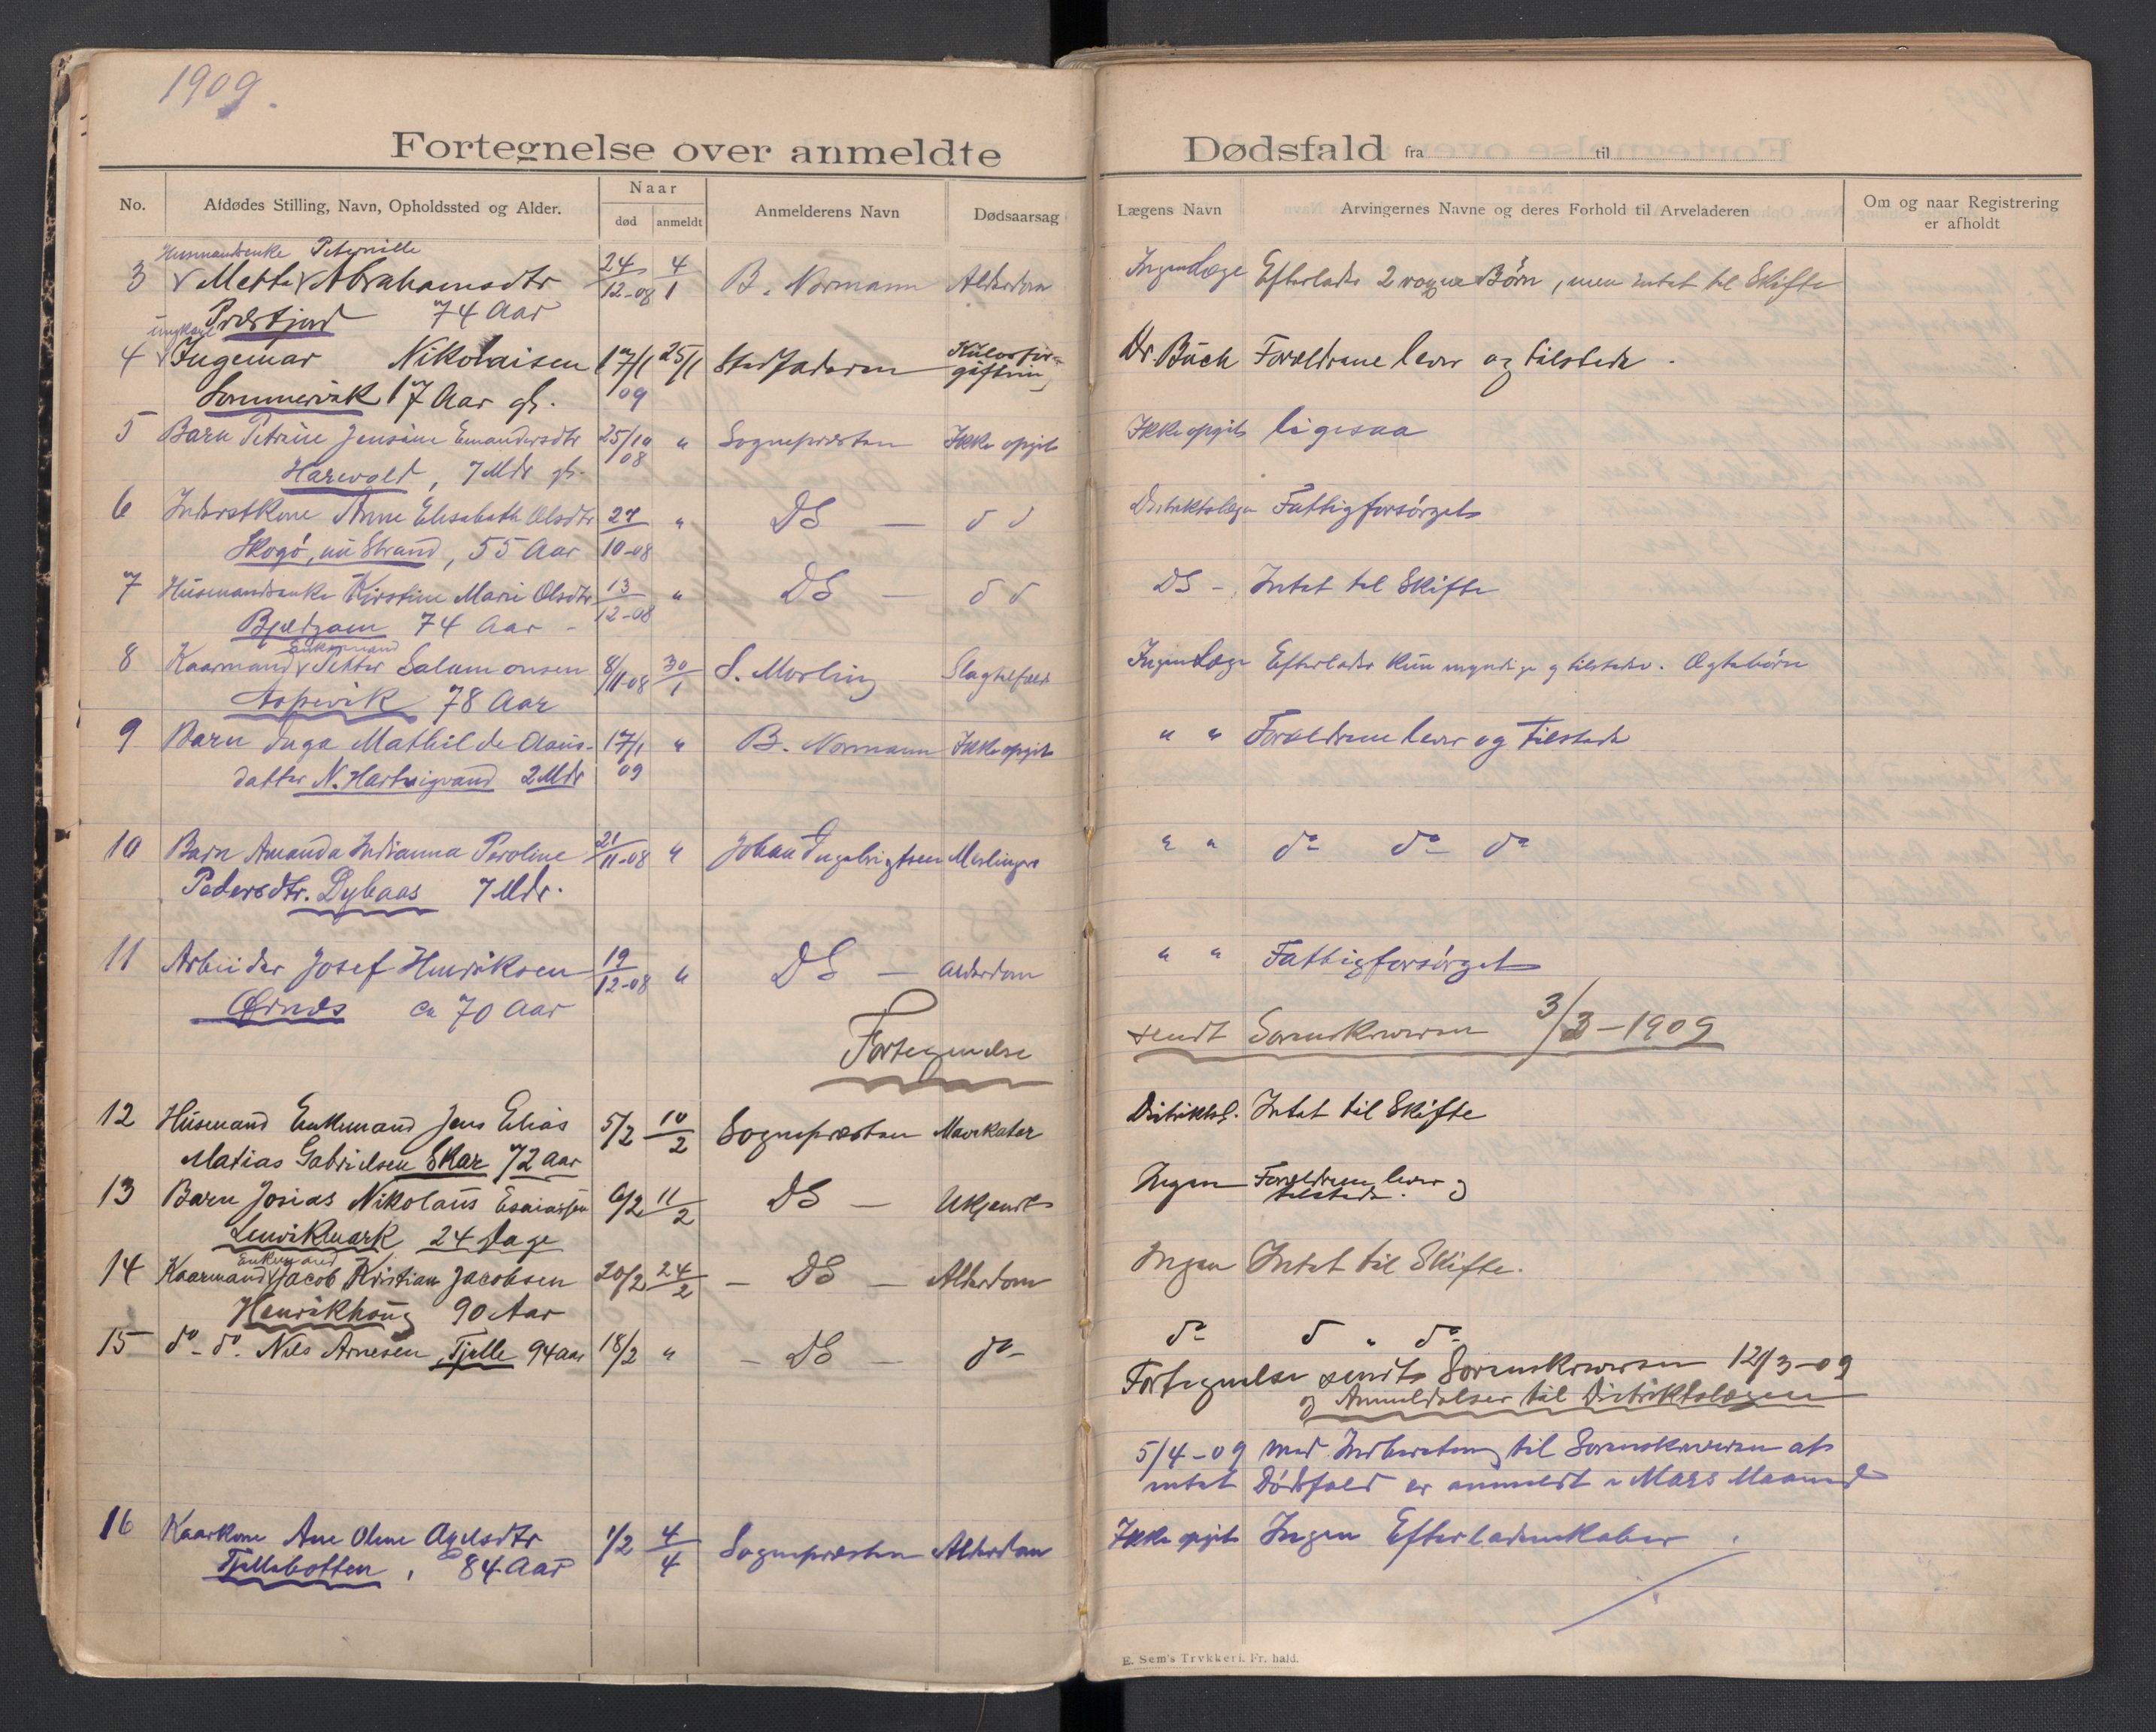 1909.
Fortegnelse over anmeldte Dødsfald fra til
No. Afdødes Stilling, Navn, Opholdssted og Alder. Naar død anmeldt Anmelderens Navn Dødsaarsag Lægens Navn Arvingernes Navne og deres Forhold til Arveladeren Om og naar Registrering er afholdt
Husmandsenke Peternille
3 Mette Abrahamsdtr 24/12-08 4/1 B. Normann Alderdom Ingen Læge Efterlader 2 voxne Børn, men intet til Skifte
74 Aar
ungkarl
4 Ingemar Nikolaisen 17/1 09 25/1 Stedfaderen Kulosfor-
giftning Dr. Buch Forældrene lever og tilstede.
Sommervik 17 Aar gl.
5 Barn Petrine Jensine Emandersdtr 25/10 08 " Sognepræsten Ikke opgit Ikke opgit ligesaa
Harevold, 7 Mdr gl.
6 Inderstkone Anne Elisabeth Olsdtr 27/10-08 " DS — d d Distriktslægen Fattigforsørget
Skogø, nu Strand, 55 Aar
7 Husmandsenke Kirstine Marie Olsdtr 13/12-08 " DS — d d DS - Intet til Skifte
74 Aar -
Enkemand
8 Kaarmand Petter Salamonsen 8/11-08 30/1 S. Morling Slagtilfælde Ingen Læge Efterlader kun myndige og tilstedev. Ægtebørn
Aspevik 78 Aar
9 Barn Inga Mathilde Claus- 17/1 09 " B. Normann Ikke opgit " " Forældrene lever og tilstede
datter N. Hartvigvand 2 Mdr
10 Barn Amanda Indianna Peroline 21/11-08 " Johan Ingebrigtsen Meslinger " " do do do
Pedersdtr. Dybaas 7 Mdr.
11 Arbeider Josef Henriksen 19/12-08 " DS — Alderdom " " Fattigforsørget
Ørnes ca 70 Aar
Fortegnelse sendt Sorenskriveren 3/3-1909
12 Husmand Enkemand Jens Elias 5/2 10/2 Sognepræsten Mavekatar Distriktsl. Intet til Skifte
Matias Gabrielsen Skar 72 aar
13 Barn Josias Nikolaus Esaiassen 6/2 11/2 DS — Ukjendt Ingen Forældrene lever og
tilstede.
Lenvikmark 24 Dage
Enkemand
14 Kaarmand Jacob Kristian Jacobsen 20/2 24/2 — DS — Alderdom Ingen Intet til Skifte.
Henrikhaug 90 Aar
15 do do. Nils Arnesen, Tjelle 94 aar 18/2 " — DS — do- do d " do
Fortegnelse sendt Sorenskriveren 12/3-09
og Anmeldelser til Distriktslægen
5/4-09 med Indberetning til Sorenskriveren at
intet Dødsfald er anmeldt i Mars Maaned
16 Kaarkone Ane Olene Axelsdtr 1/2 4/4 Sognepræsten Alderdom Ikke opgit Ingen Efterladenskaber.
Tjellebotten, 84 Aar
E. Sem's Trykkeri, Fr. hald.